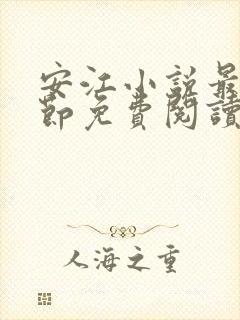 安江小说最
節免費閱讀
人海之重